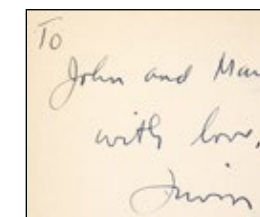 TO
John and Mar
with love,
Irwin